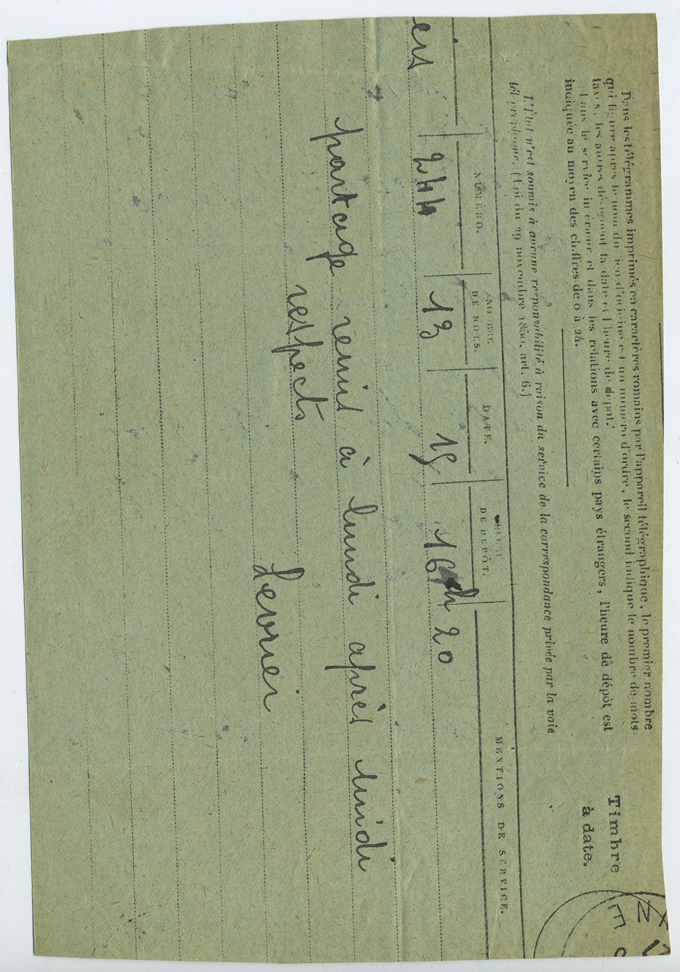 Dans les télégrammes imprimés en caractères romains par l'appareil télégraphique, le premier nombre
qui figure après le nom du lieu d'origine est un numéro d'ordre, le second indique le nombre de mots
taxés, les autres désignent la date et l'heure de dépôt.
Dans le service intérieur et dans les relations avec certains pays étrangers, l'heure de dépôt est
indiquée au moyen des chiffres de 0 à 24.
Timbre
à date.
L'État n'est soumis à aucune responsabilité à raison du service de la correspondance privée par la voie
télégraphique. (Loi du 29 novembre 1850, art. 6.)
NUMÉRO. NOMBRE DE MOTS. DATE. HEURE DE DEPÔT. MENTIONS DE SERVICE.
244 13 15 16h 20
partage remis à lundi après midi
respects
Levrier